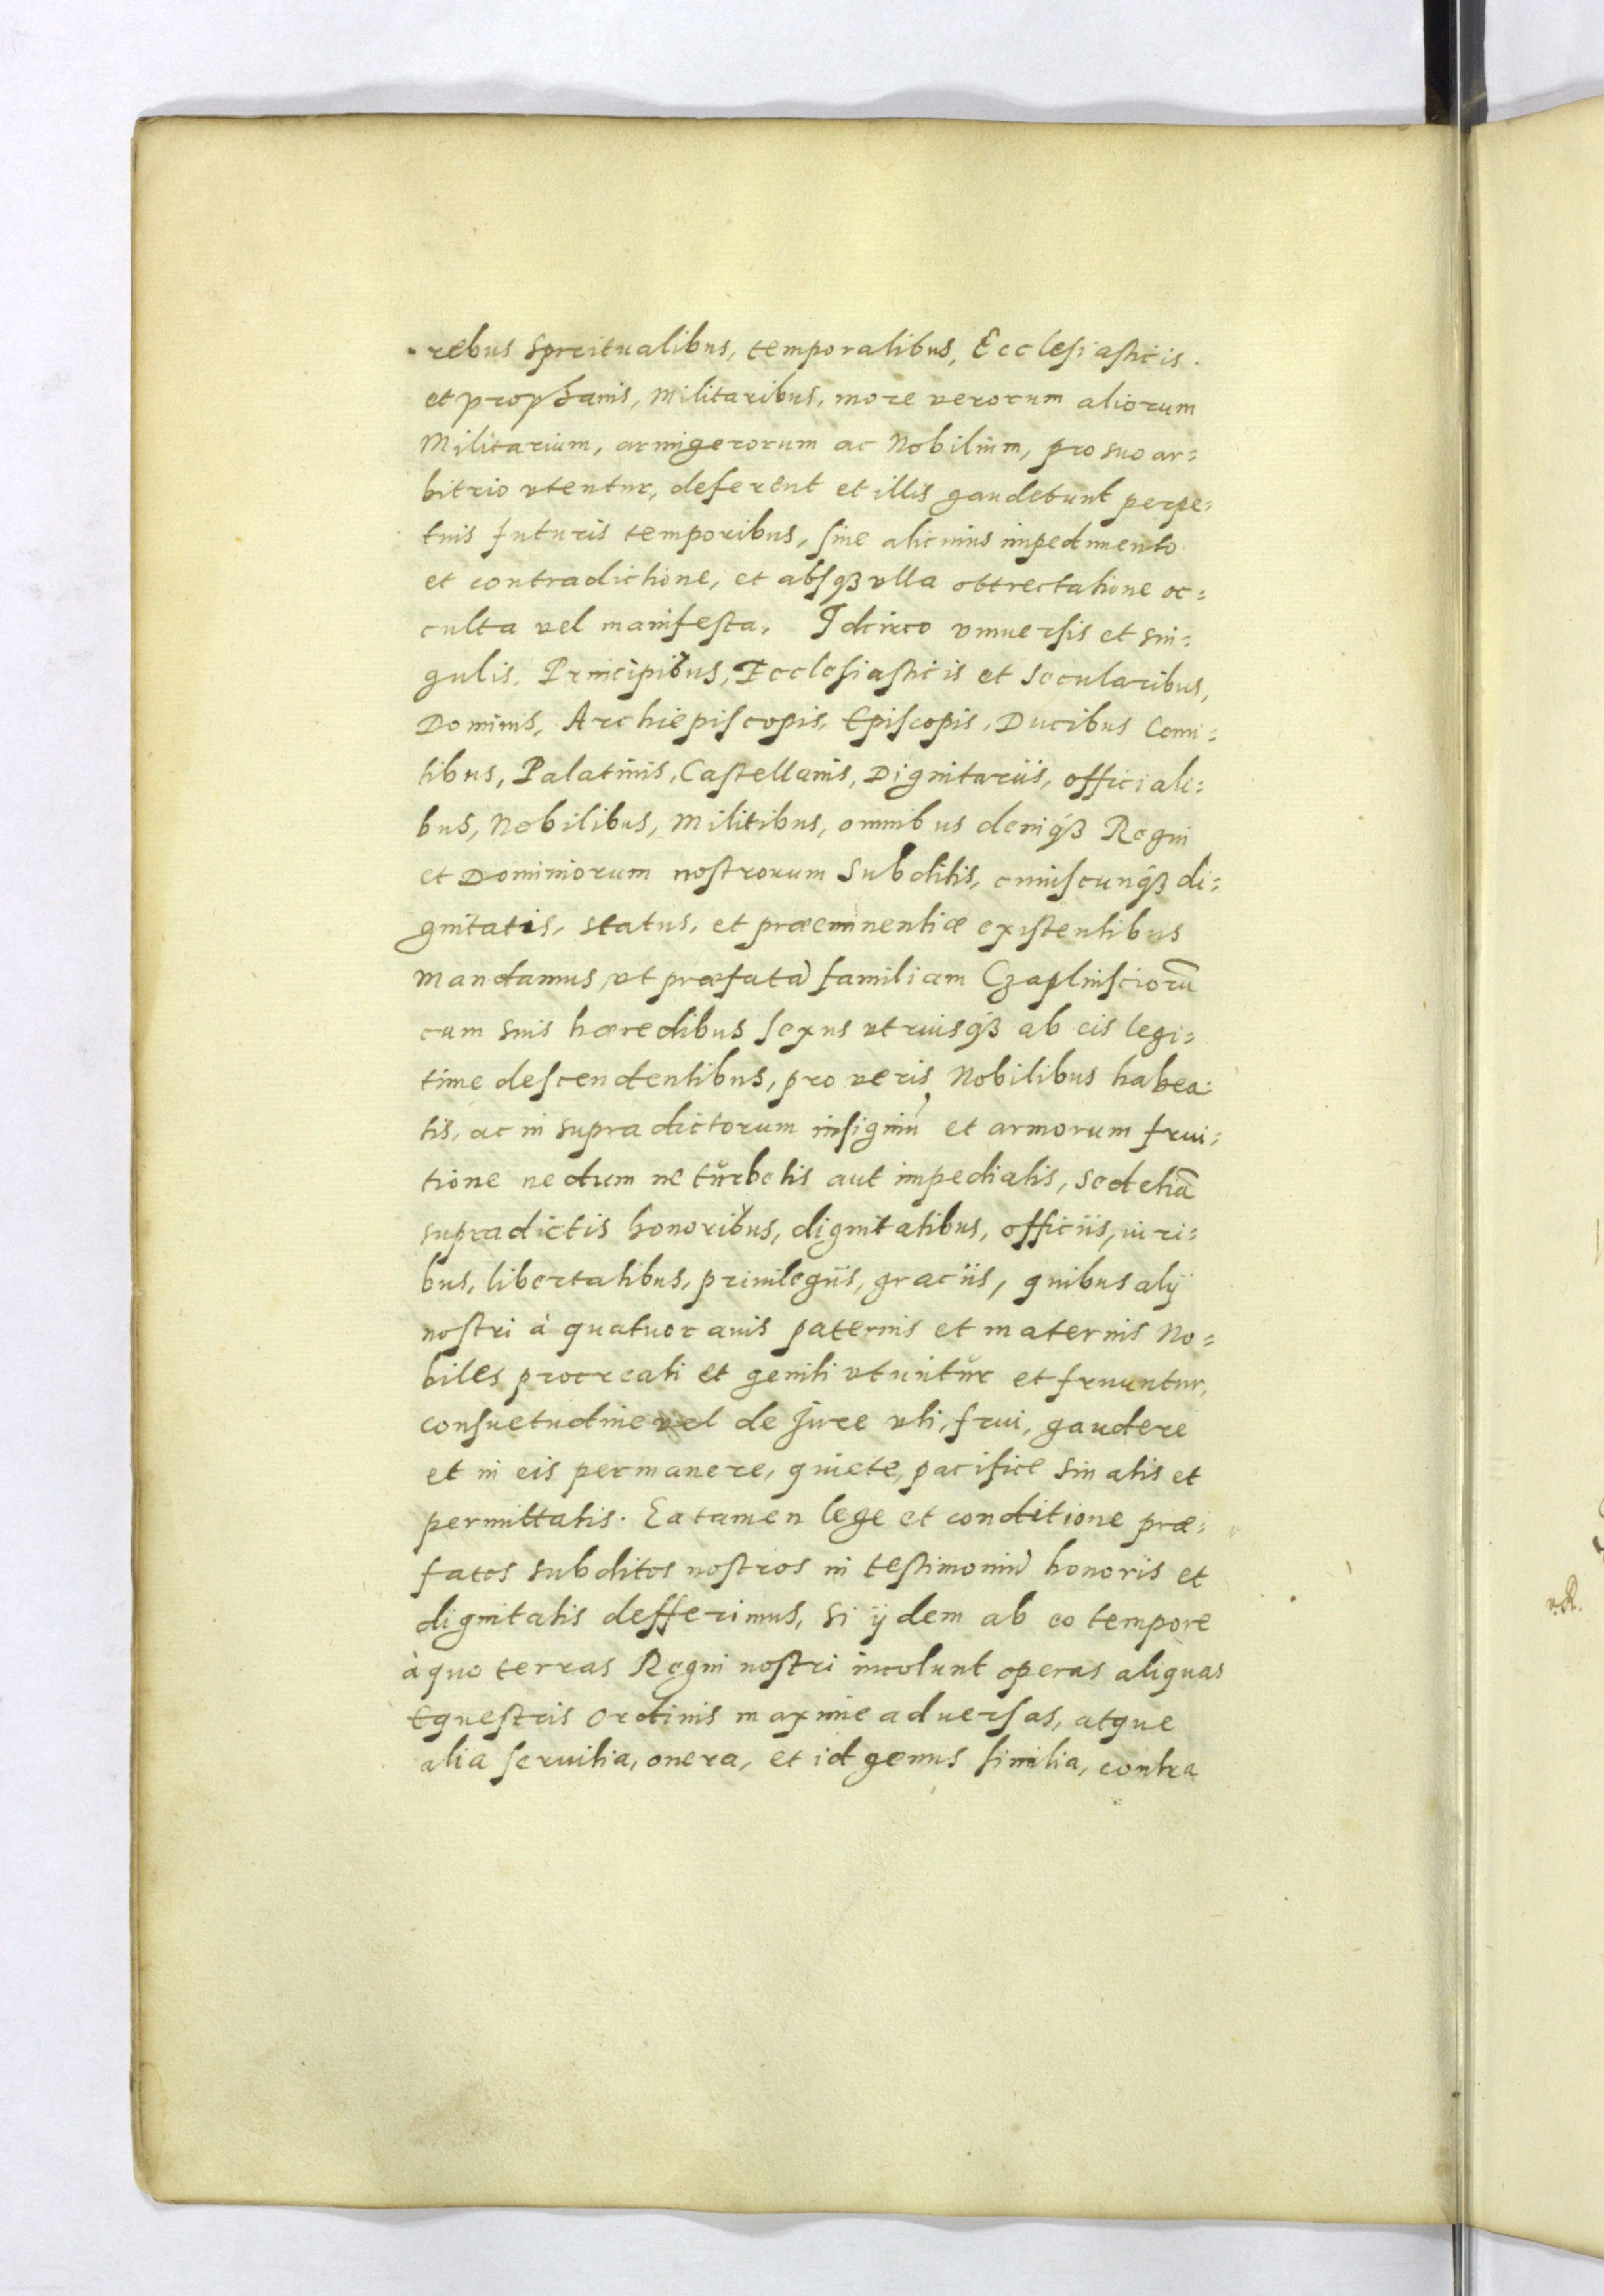 rebus spiritualibus, temporalibus, Ecclesiasticis.
et prophanis, Militaribus, more verorum aliorum
Militarium, armigerorum ac Nobilium, pro suo ar=
bitrio vtentur, deferent et illis gaudebunt perpe=
tuis futuris temporibus, sine alicuius impedimento
et contradictione, et absqꝫ vlla obtrectatione oc=
culta vel manifesta. Idcirco vniuersis et sin=
gulis, Principibus, Ecclesiasticis et Secularibus,
Dominis, Archiepiscopis, Episcopis, Ducibus Comi=
tibus, Palatinis, Castellanis, Dignitariis, officiali=
bus, Nobilibus, Militibus, omnibus deniqꝫ Regni
et Dominiorum nostrorum Subditis, cuiuscunqꝫ di=
gnitatis, status, et præeminentiæ existentibus
Mandamus, vt præfatã familiam Czaplinsciorũ
cum suis hæredibus sexus vtriusqꝫ ab eis legi=
time descendentibus, pro veris Nobilibus habea=
tis, ac in supradictorum insigniũ et armorum frui=
tione nedum ne turbetis aut impediatis, sed etiã
supradictis honoribus, dignitatibus, officiis, iuri=
bus, libertatibus, priuilegiis, graciis, quibus alij
nostri à quatuor auis paternis et maternis No=
biles procreati et geniti vtuntur et fruuntur,
consuetudine vel de Jure vti, frui, gaudere
et in eis permanere, quiete, pacifice sinatis et
permittatis. Ea tamen lege et conditione præ=
fatos subditos nostros in testimoniũ honoris et
dignitatis defferimus, si ijdem ab eo tempore
à quo terras Regni nostri incolunt operas aliquas
Equestris Ordinis maxime aduersas, atque
alia seruilia, onera, et id genus similia, contra